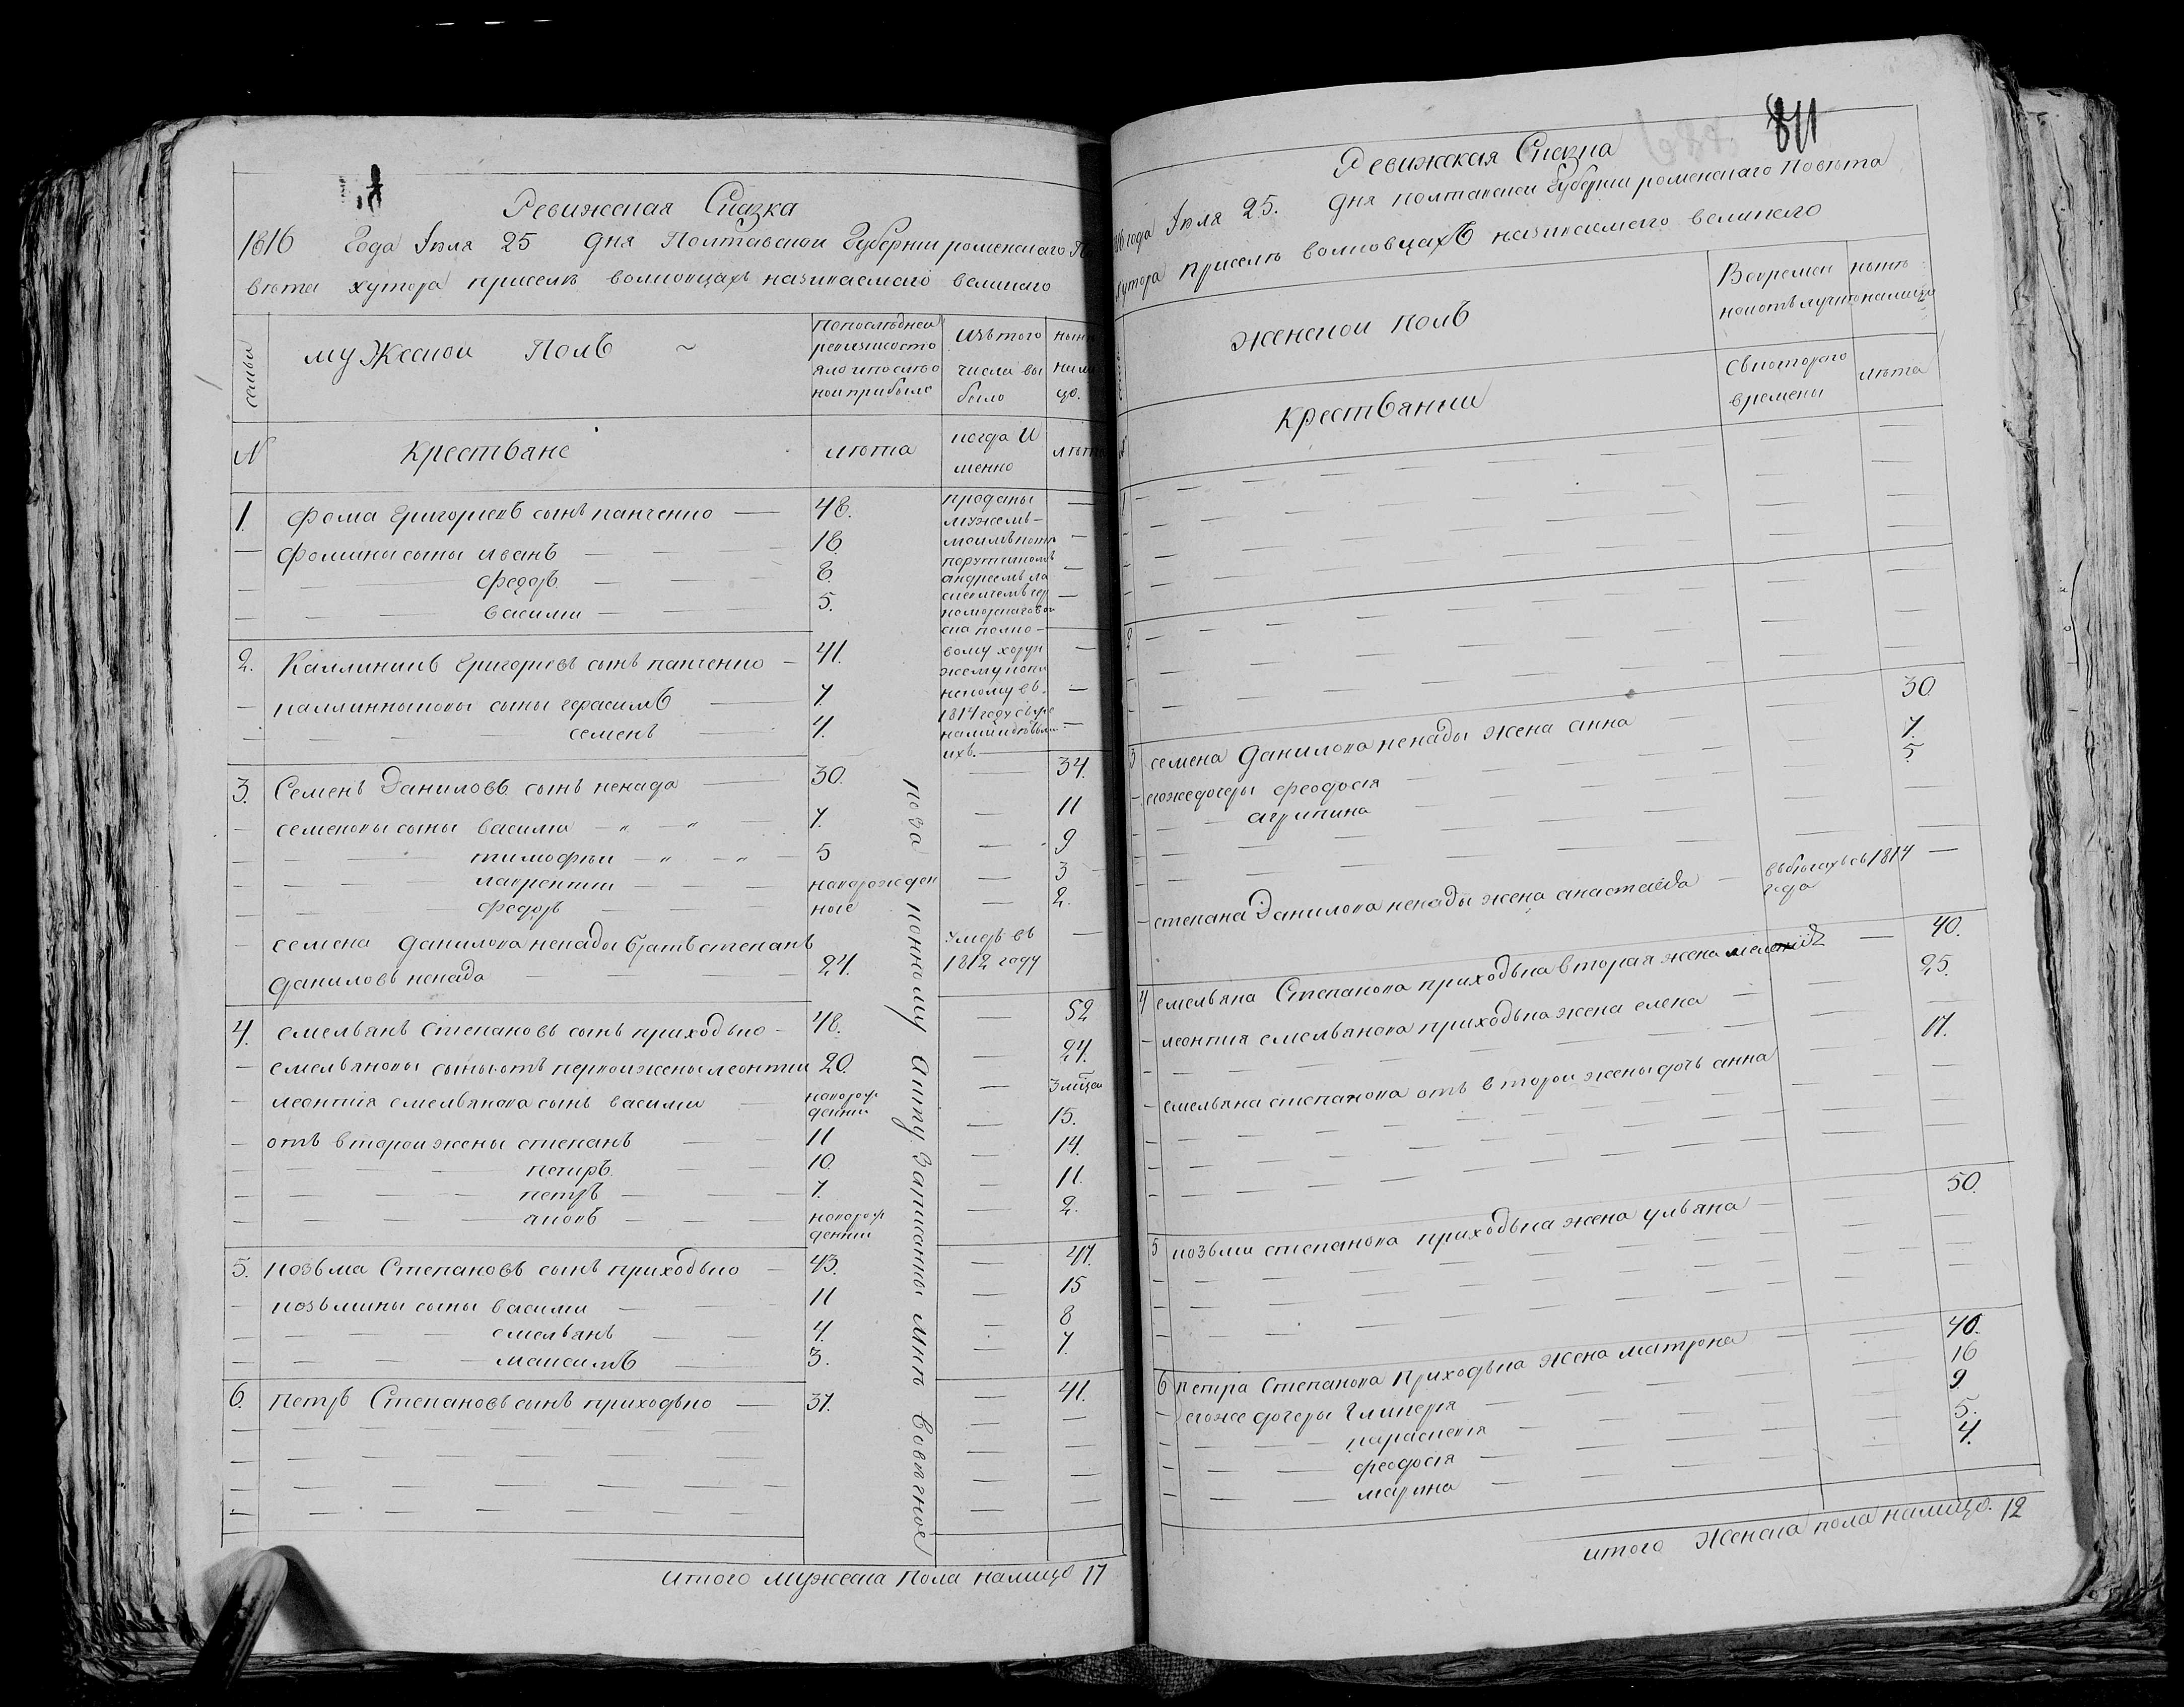 Ревижская Сказка
1816 Года Іюля 25 дня Полтавской Губернии роменскаго По
вѣта хутора приселѣ волковцахъ називаемаго великаго
семьи
мужескои Полъ
попоследнеи ревизисосто яло ипоследнои прибыло
Изътого числа выбыло
ныне налицо.
N
Крестьяне
лѣта
когда И менно
лѣта
1. фома григориевъ сынъ панченко 48.
проданы мужемъ моимъ
андреемъ
1814 году
ихъ.
фомины сыны иванъ 18.
федоръ 8.
василии 5.
2. Каллиникъ григориевъ сынъ панченко 41.
каллинниковы сыны герасимъ 7.
семенъ 4.
3. Семенъ Даниловъ сынъ ненада 30. 34.
семеновы сыны василии 7. 11
тимофеи 5 9
лаврентии новорожден 3
федоръ ные 2.
семена данилова ненады братъ степанъ умеръ въ
даниловъ ненада 24. 1812 году
4. емельянъ Степановъ сынъ приходько 48. 52
емельяновы сыны отъ первои жены леонтии 20. 24.
леонтия емельянова сынъ василии новорожденнии 3 мѣца
отъ второи жены степанъ 11 15.
петръ. 10. 14.
петръ 7. 11.
яковъ новорожденнии 2.
5. козьма Степановъ сынъ приходько 43. 47.
козьмины сыны василии 11 15
емельянъ 4. 8
максимъ 3. 7.
6. Петръ Степановъ сынъ приходько 37. 41.
поза конному Акту Записанны мнѣ Вовѣчное
итого мужеска пола налицо 17
811
Ревижская Сказка
1816 года Іюля 25. дня полтавскои Губернии роменскаго Повѣта
хутора приселѣ волковцахъ називаемаго великаго
женскои полъ
Вовремен нои отълучке
ныне налицо
Крестьянки
Съкотораго времени
лѣта
1
2
3 семена Данилова ненады жена анна 30.
егожедочеры феодосія 7.
агрипина 5.
степана Данилова ненады жена анастасія въ бегахъ съ 1814 года
4 емельяна Степанова приходька вторая жена 40.
леонтия емельянова приходька жена елена 25.
емельяна степанова отъ второи жены дочь анна 17.
5 козьми степанова приходька жена ульяна 50.
6 петра Степанова приходька жена матрона 40.
егоже дочеры гликерія 16
параскевія 9.
феодосія 5.
марина 4.
итого Женска пола налицо. 12